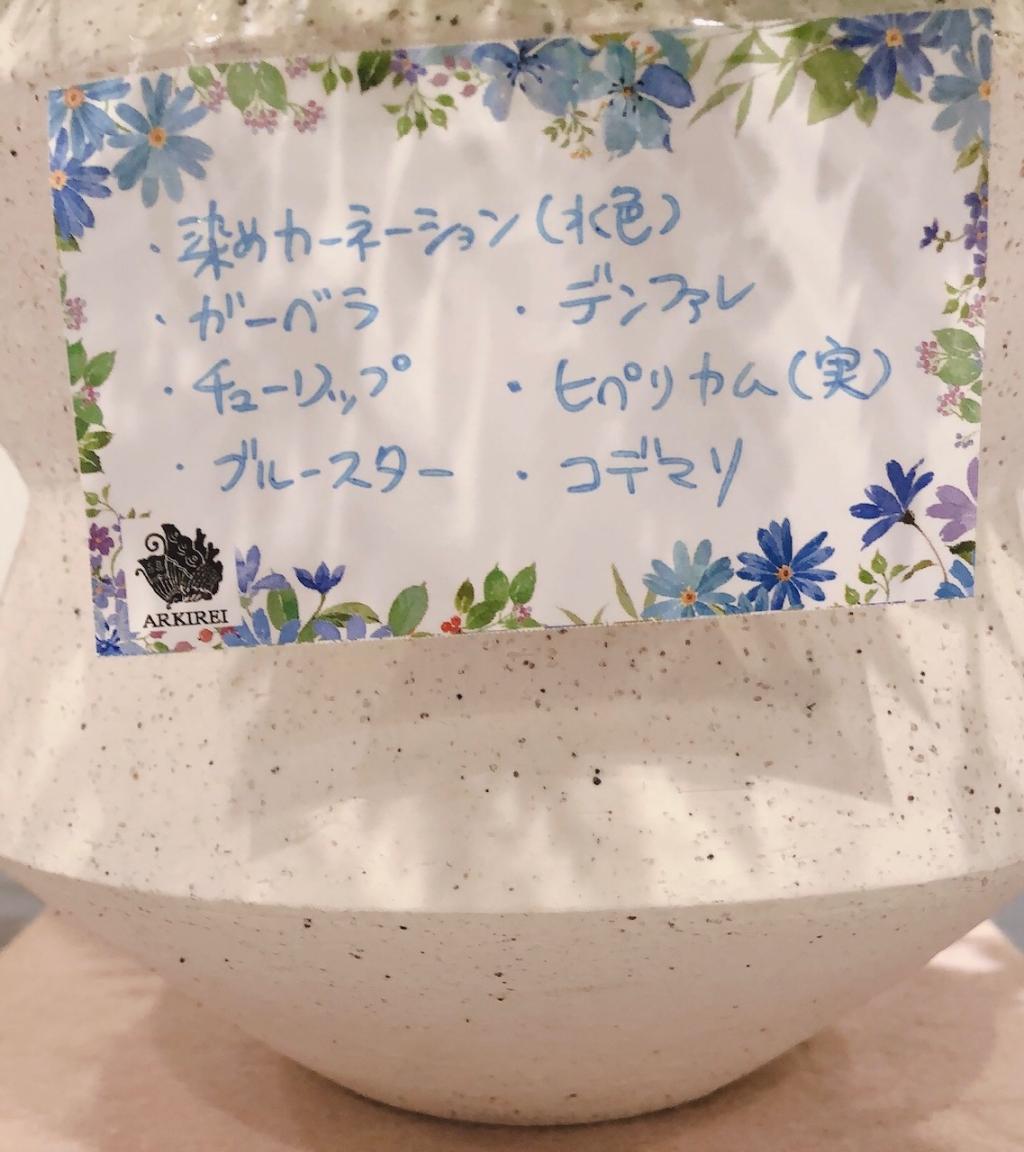 ・染めカーネーション(水色)
・ガーベラ ・デンファレ
・チューリップ ・ヒペリカム(実)
・ブルースター ・コデマリ
ARKIREI